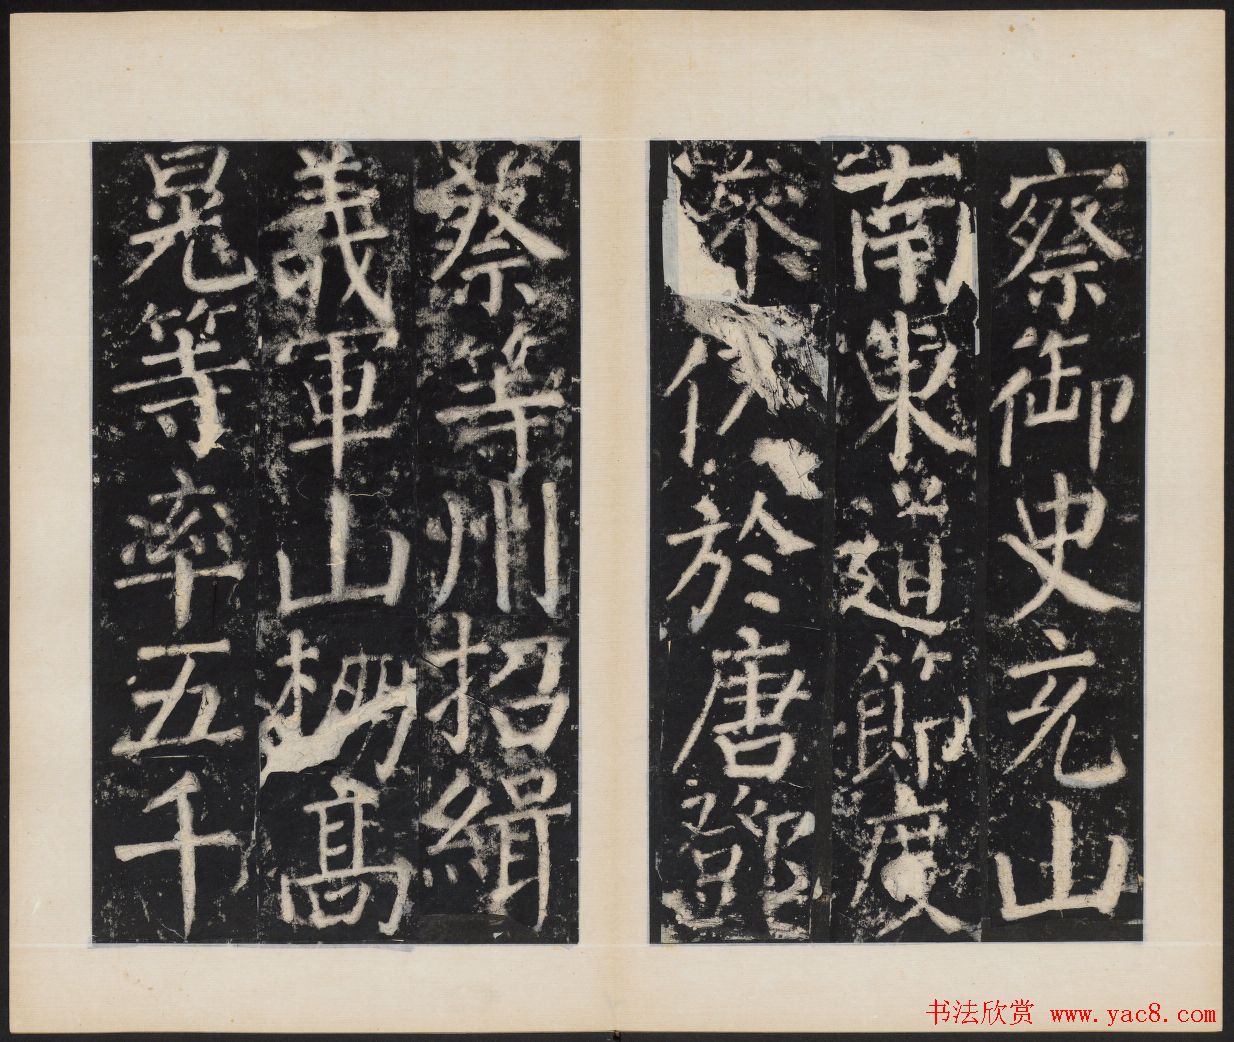 察御史充山
南東道節度
仍於唐鄧
蔡等州招緝
義軍山棚高
晃等率五千
书法欣赏 www.yac8.com